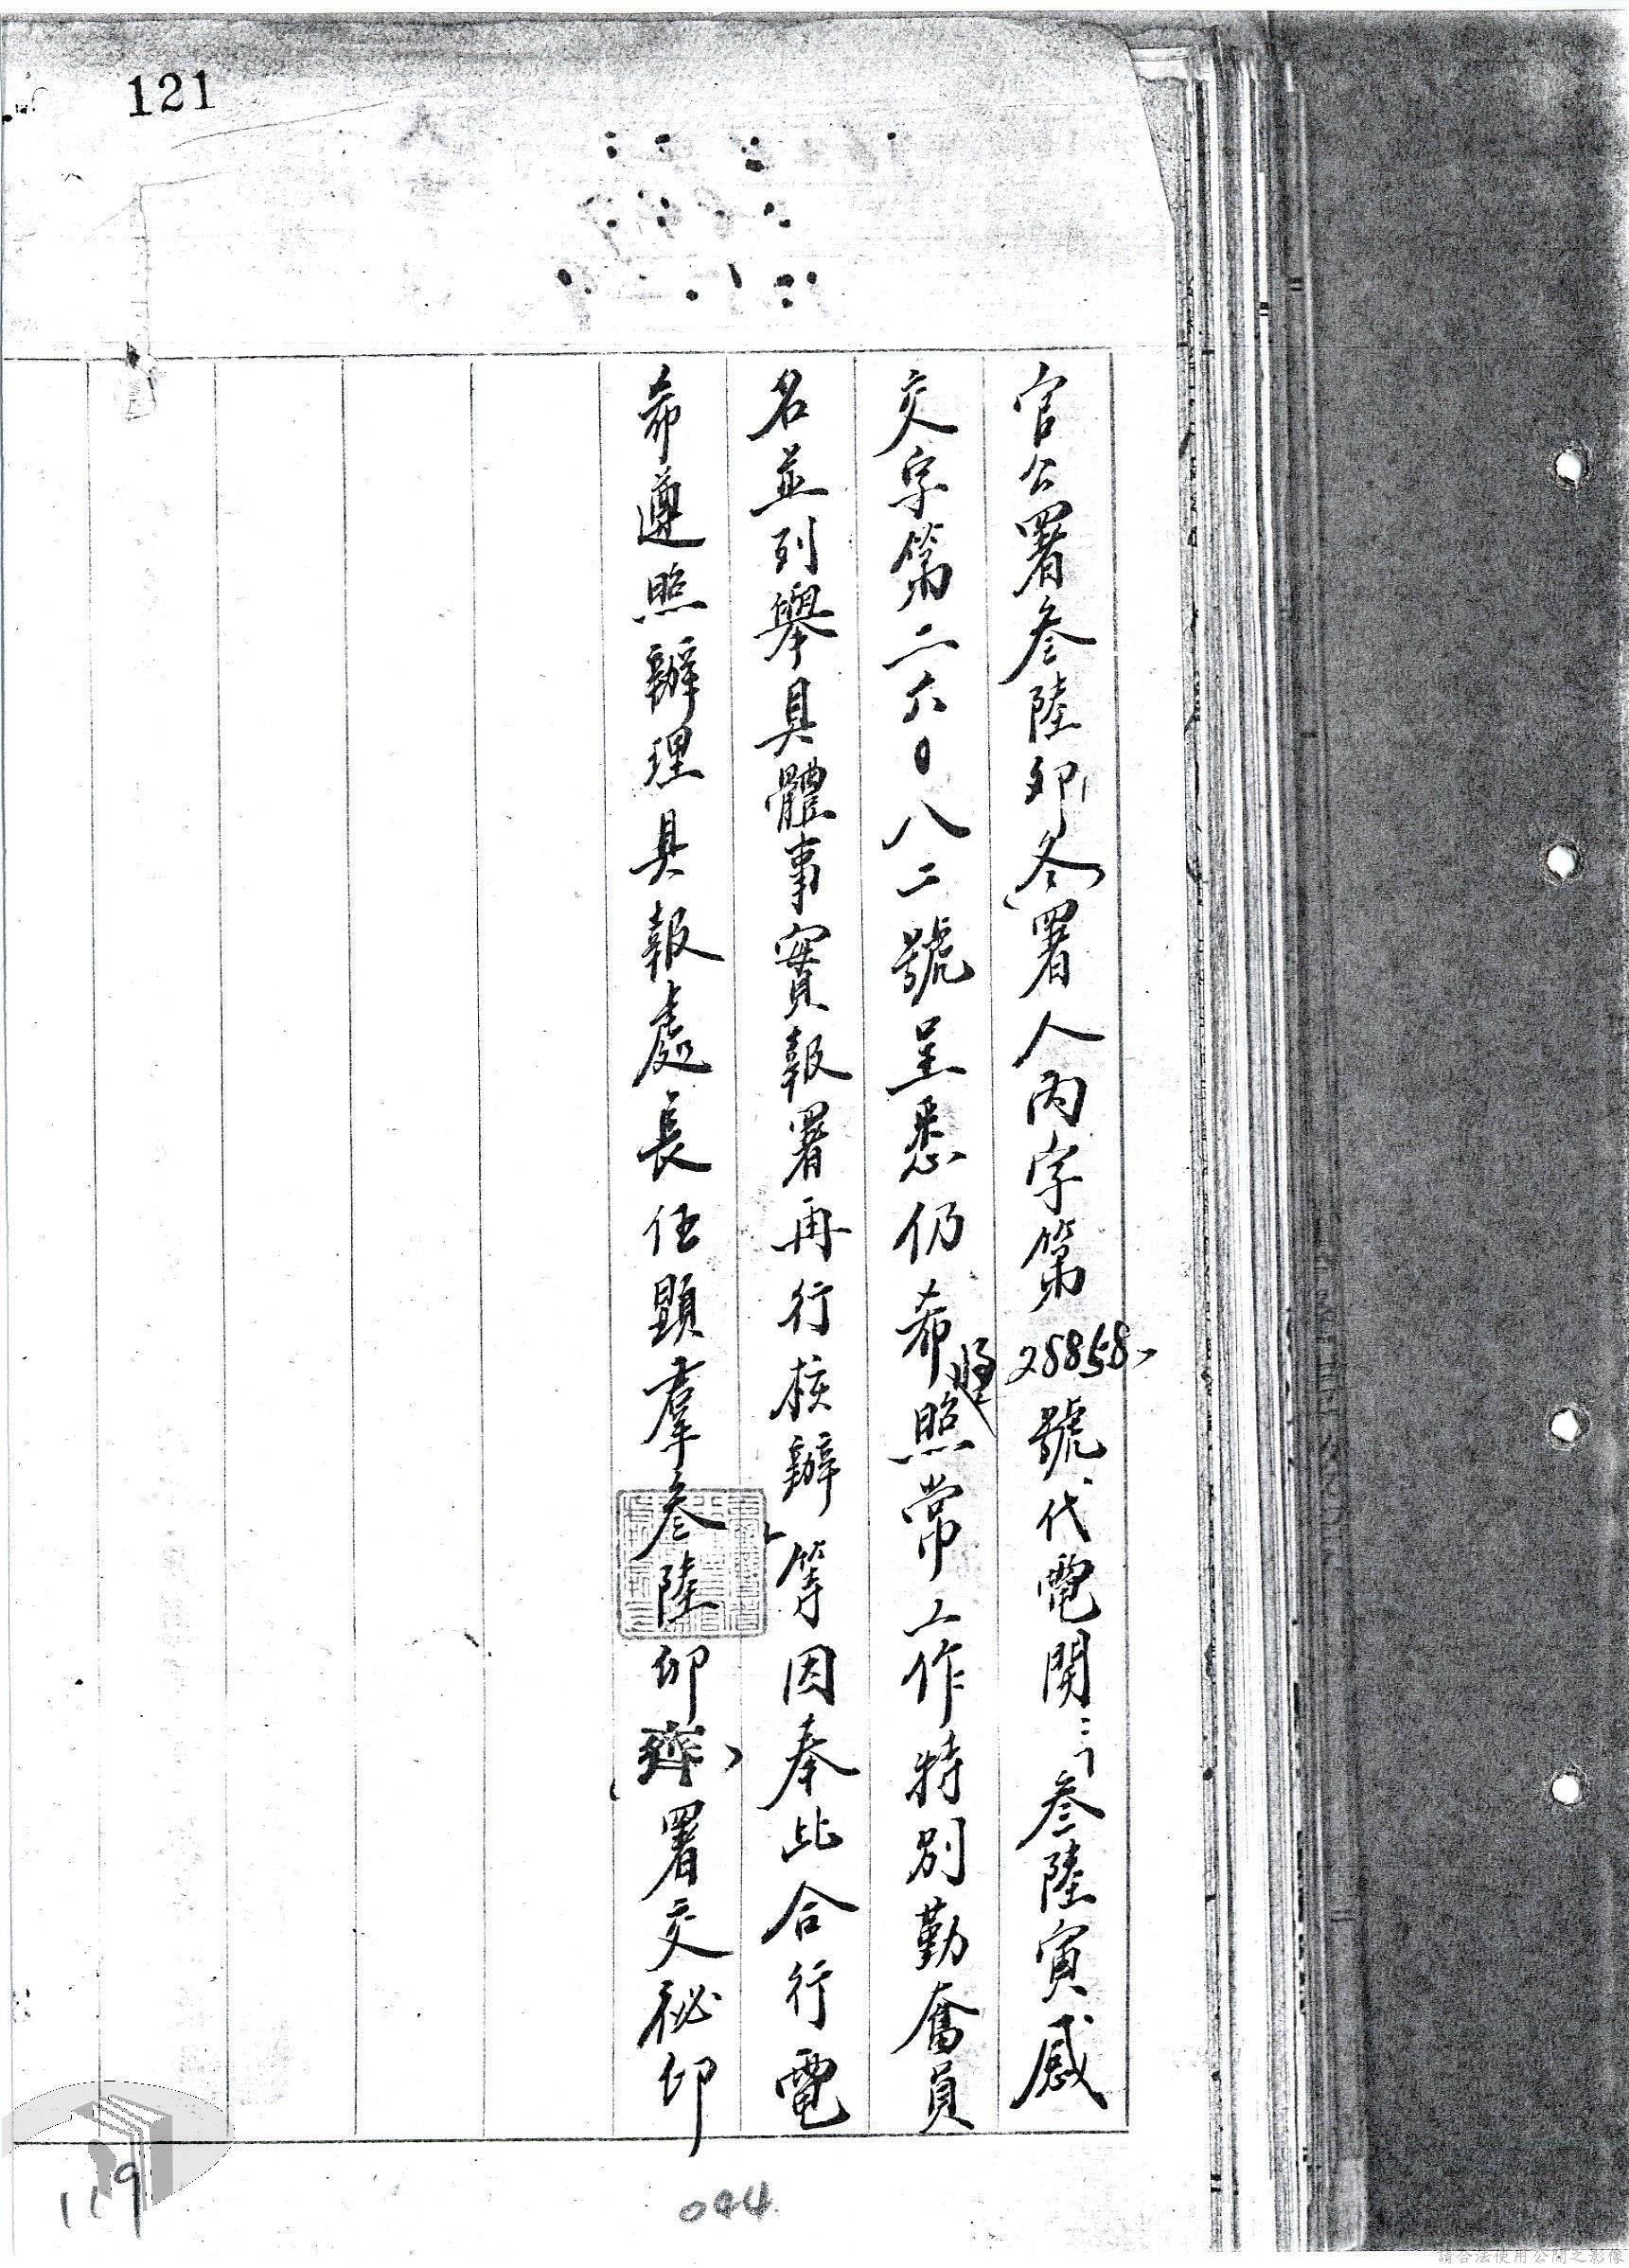 121
官公署叁陸卯(冬)署人丙字第28858號代電開：「叁陸寅感
交字第二六〇八二號呈悉仍希將照常工作特別勤奮員
名並列舉具體事實報署再行核辦」等因奉此合行電
希遵照辦理具報處長任顯羣叁陸卯(齊)署交秘印
119
044
請合法使用公開之影像